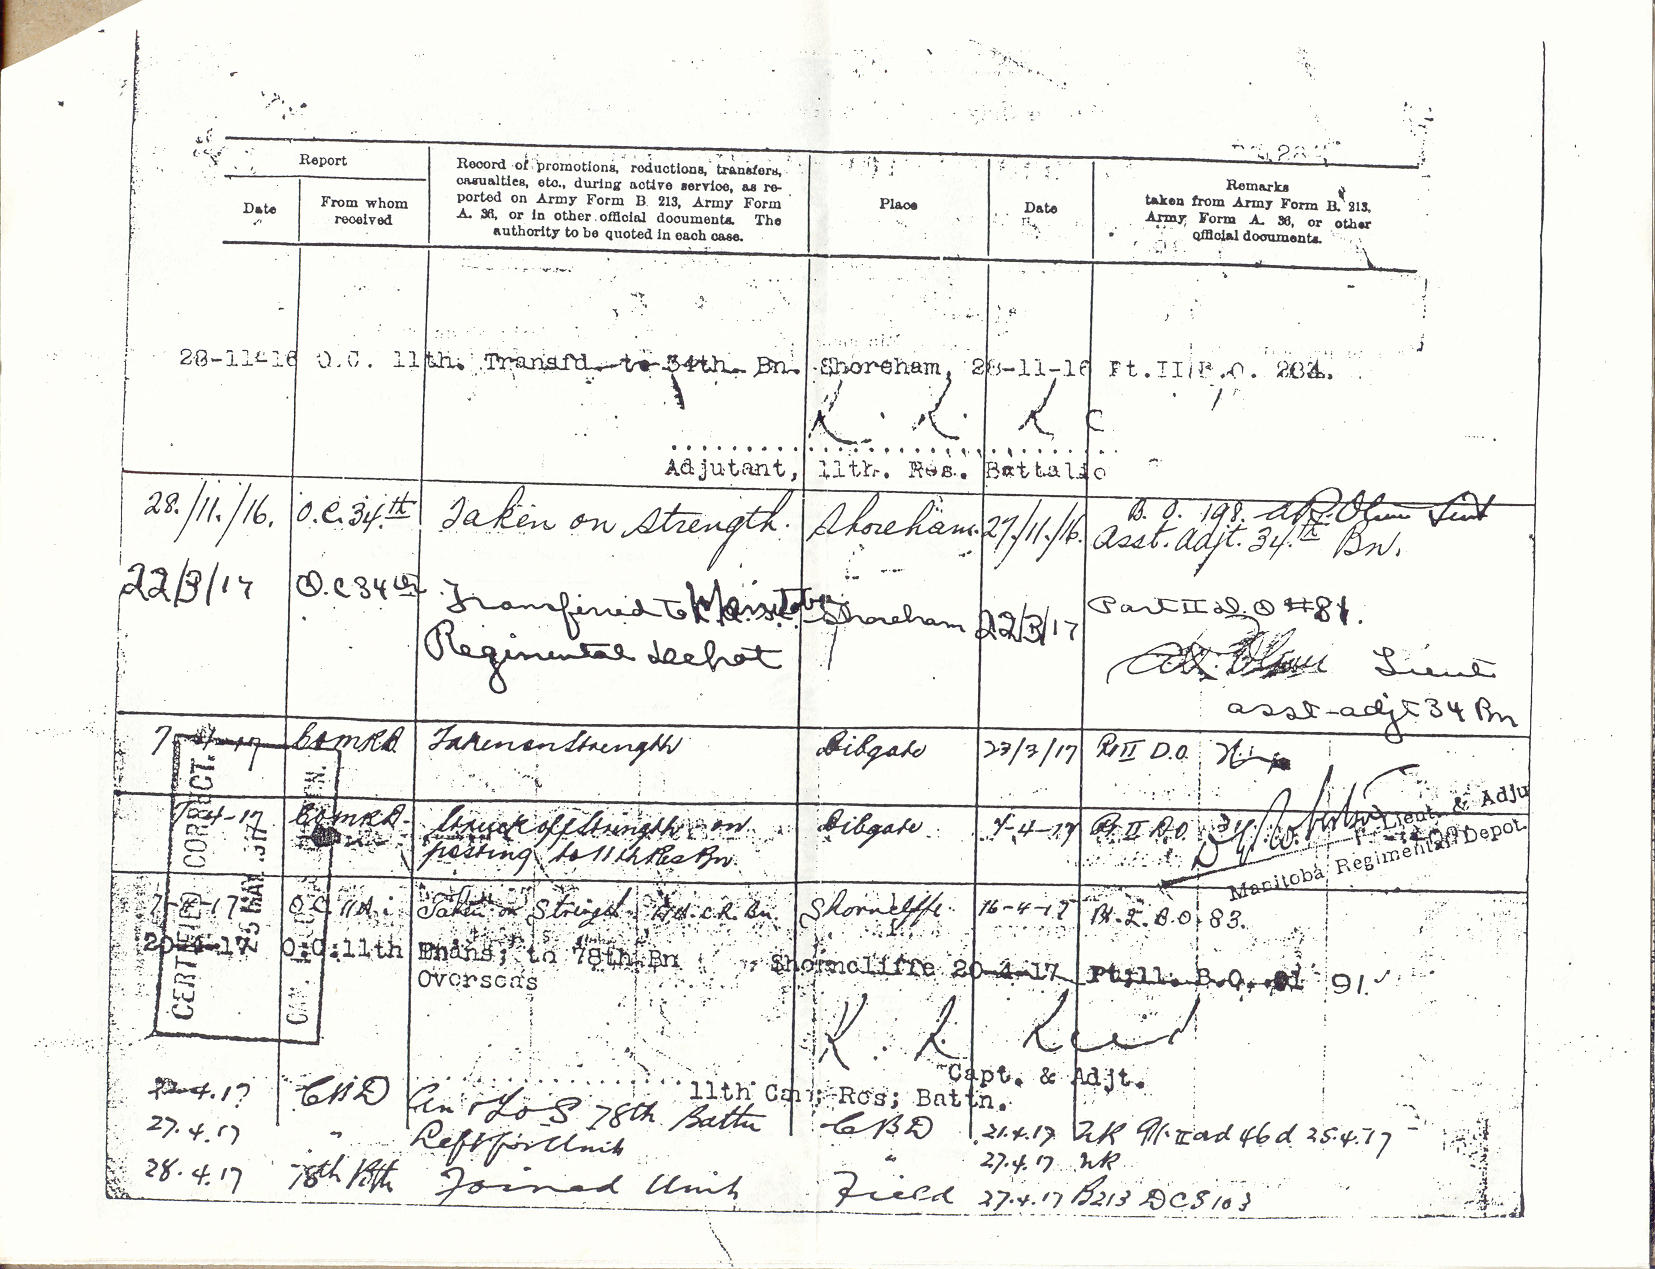 Report
Date
From whom
received
Record of promotions, reductions, transfers,
casualties, etc., during active service, as re-
ported on Army Form B 213, Army Form
A. 36, or in other official documents. The
authority to be quoted in each case.
Place
Date
Remarks
taken from Army Form B. 213,
Army Form A. 36, or other
official documents.
28-11-16 O.C. 11th. Transfd to 34th. Bn. Shoreham, 28-11-16 Pt.II B.O. 284.
K. K.
Adjutant, 11th. Res. Battalio
28./11./16. O.C. 34.th Taken on strength. Shoreham. 27/11./16. B. O. 198.
Asst. Adjt. 34.th Bn.
22/3/17 O.C 34th Transferred to Manitoba Shoreham 22/3/17 Part II D.O #81.
Regimental Depot
Lieut
asst-adjt 34 Bn
Taken on Strength Dibgate 23/3/17 Pt II D.O.
-4-17 Struck off Strength on Dibgate 7-4-17 Pt II D.O.
posting to 11th Res Bn.
Lieut. & Adju
Manitoba Regimental Depot.
Taken on Strength Shorncliffe 16-4-17 Pt. II. B.O. 83.
20-4-17 O.C.11th Trans; to 78th Bn Shorncliffe 20-4-17 Pt;ll. B.O. 91.
Overseas
CERTIFIED CORRECT.
25 MAY 1917
CAN.
Capt. & Adjt.
11th Can; Res; Battn.
.4.17 CBD Arr & ToS 78th Battn CBD 21.4.17 Pt. II ord 46 d 25.4.17
27.4.17 " Left for Unit " 27.4.17 NR
28.4.17 78th Btn Joined Unit Field 27.4.17 B213 DCS103